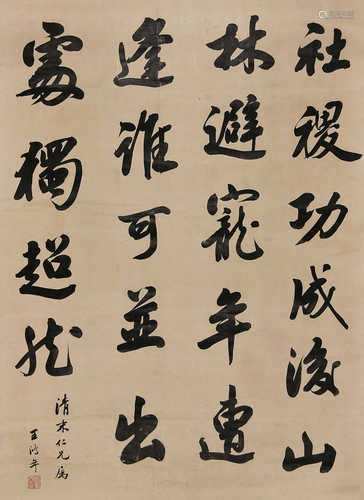 社稷功成後山
林避寵年遭
逢誰可並出
處獨超然
清來仁兄屬
王鴻年